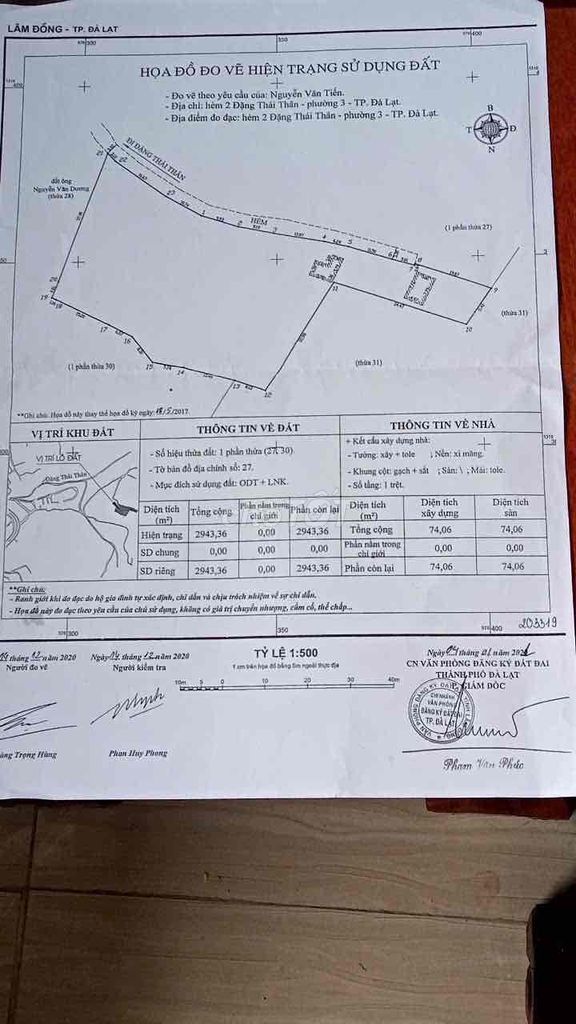 LÂM ĐỒNG - TP. ĐÀ LẠT
HỌA ĐỒ ĐO VẼ HIỆN TRẠNG SỬ DỤNG ĐẤT
- Đo vẽ theo yêu cầu của: Nguyễn Văn Tiến.
- Địa chỉ: hẻm 2 Đặng Thái Thân - phường 3 - TP. Đà Lạt.
- Địa điểm đo đạc: hẻm 2 Đặng Thái Thân - phường 3 - TP. Đà Lạt.
B
T
Đ
N
ĐI ĐẶNG THÁI THÂN
đất ông
Nguyễn Văn Dương
(thửa 28)
HẺM
(1 phần thửa 27)
(thửa 31)
(thửa 31)
(1 phần thửa 30)
**Ghi chú: Họa đồ này thay thế họa đồ ký ngày: 18/5/2017.
VỊ TRÍ KHU ĐẤT
VỊ TRÍ LÔ ĐẤT
Đặng Thái Thân
THÔNG TIN VỀ ĐẤT
- Số hiệu thửa đất: 1 phần thửa (27, 30)
- Tờ bản đồ địa chính số: 27.
- Mục đích sử dụng đất: ODT + LNK.
Diện tích (m²) Tổng cộng Phần nằm trong chỉ giới Phần còn lại
Hiện trạng 2943,36 0,00 2943,36
SD chung 0,00 0,00 0,00
SD riêng 2943,36 0,00 2943,36
THÔNG TIN VỀ NHÀ
+ Kết cấu xây dựng nhà:
- Tường: xây + tole ; Nền: xi măng.
- Khung cột: gạch + sắt ; Sàn: \ ; Mái: tole.
- Số tầng: 1 trệt.
Diện tích (m²) Diện tích xây dựng Diện tích sàn
Tổng cộng 74,06 74,06
Phần nằm trong chỉ giới 0,00 0,00
Phần còn lại 74,06 74,06
**Ghi chú:
- Ranh giới khi đo đạc do hộ gia đình tự xác định, chỉ dẫn và chịu trách nhiệm về sự chỉ dẫn.
- Họa đồ này đo đạc theo yêu cầu của chủ sử dụng, không có giá trị chuyển nhượng, cầm cố, thế chấp...
203319
tháng 12 năm 2020
Người đo vẽ
Ngày 04 tháng 12 năm 2020
Người kiểm tra
TỶ LỆ 1:500
1 cm trên họa đồ bằng 5m ngoài thực địa
10m 5 0 10 20 30 40m
Ngày 04 tháng 01 năm 2021
CN VĂN PHÒNG ĐĂNG KÝ ĐẤT ĐAI
THÀNH PHỐ ĐÀ LẠT
GIÁM ĐỐC
CHI NHÁNH
VĂN PHÒNG
ĐĂNG KÝ ĐẤT ĐAI
TP. ĐÀ LẠT
Trọng Hùng
Phan Huy Phong
Phạm Văn Phúc